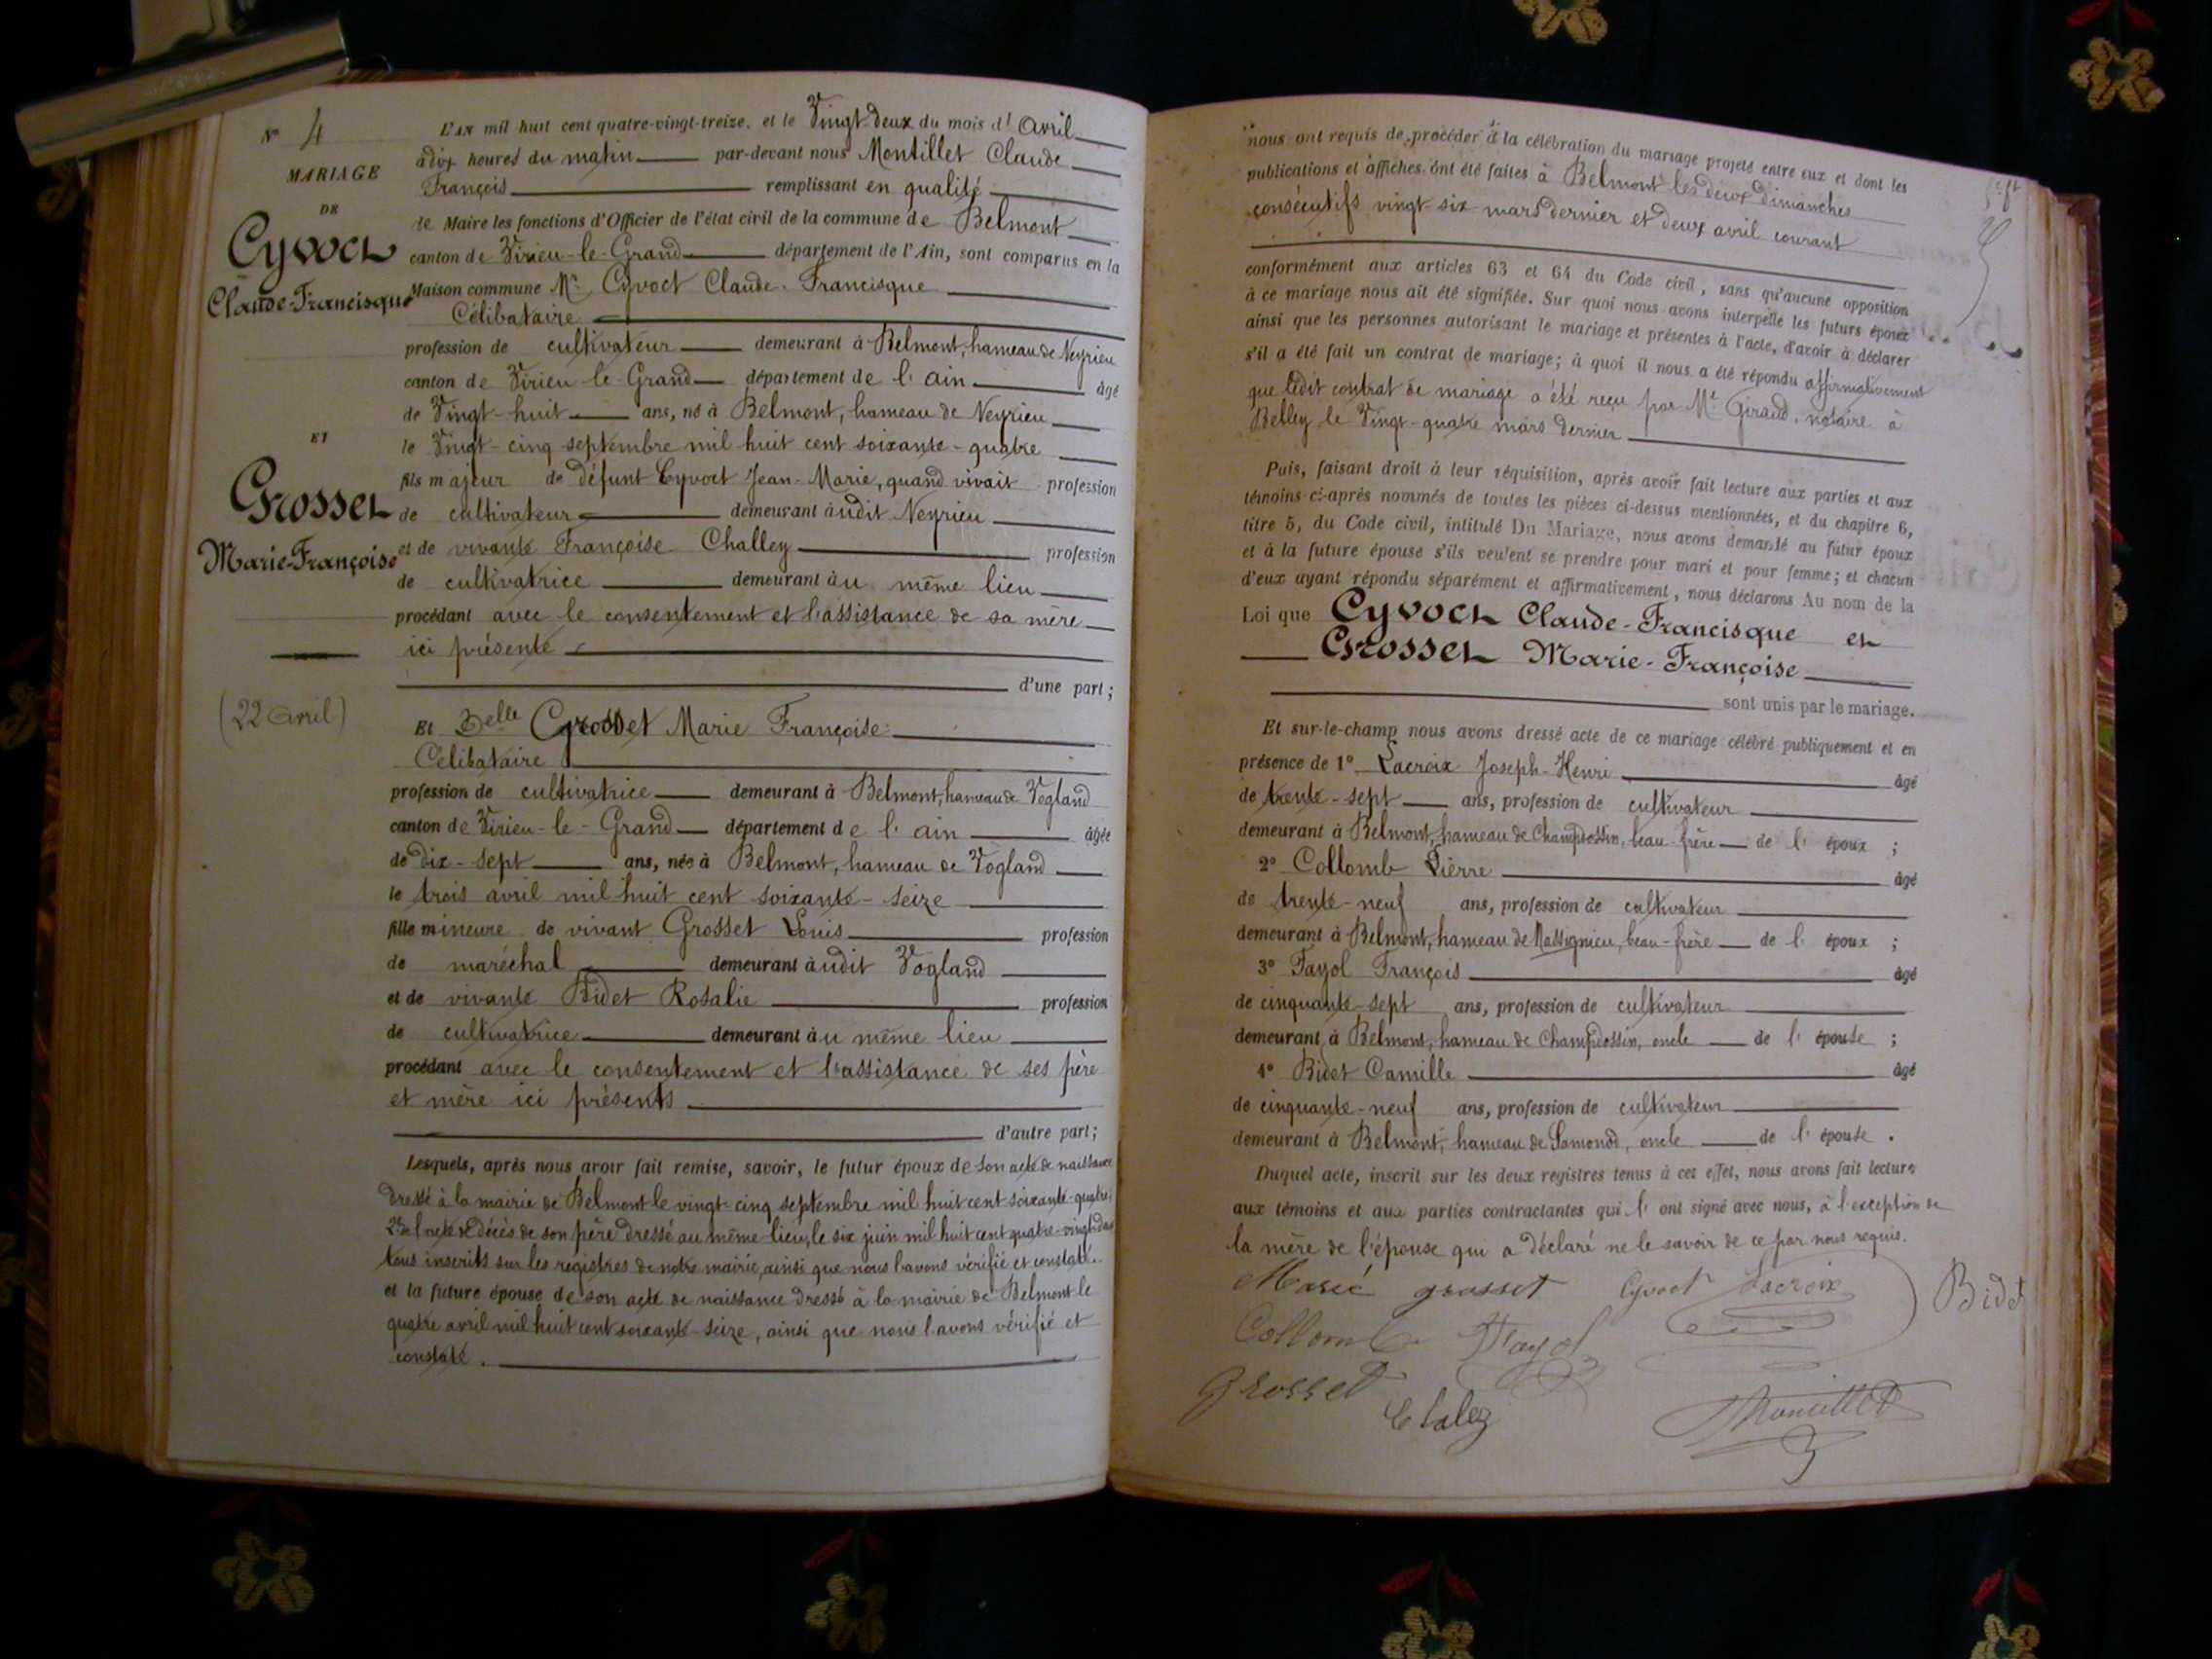 N° 4
MARIAGE
DE
Cyvoct
Claude-Francisque
ET
Grosset
Marie-Françoise
(22 avril)
L'AN mil huit cent quatre-vingt-treize, et le Vingt-deux du mois d'avril
à dix heures du matin par-devant nous Montillet Claude
François remplissant en qualité
de Maire les fonctions d'Officier de l'état civil de la commune de Belmont
canton de Virieu-le-Grand département de l'Ain, sont comparus en la
Maison commune Mr Cyvoct Claude-Francisque
Célibataire
profession de cultivateur demeurant à Belmont, hameau de Neyrieu
canton de Virieu-le-Grand département de l'ain âgé
de Vingt-huit ans, né à Belmont, hameau de Neyrieu
le Vingt-cinq septembre mil huit cent soixante-quatre
fils majeur de défunt Cyvoct Jean-Marie, quand vivait profession
de cultivateur demeurant audit Neyrieu
et de vivante Françoise Challey profession
de cultivatrice demeurant au même lieu
procédant avec le consentement et l'assistance de sa mère
ici présente
d'une part;
Et Delle Grosset Marie Françoise
Célibataire
profession de cultivatrice demeurant à Belmont, hameau de Vogland
canton de Virieu-le-Grand département de l'ain âgée
de dix-sept ans, née à Belmont, hameau de Vogland
le trois avril mil huit cent soixante-seize
fille mineure de vivant Grosset Louis profession
de maréchal demeurant audit Vogland
et de vivante Bidet Rosalie profession
de cultivatrice demeurant au même lieu
procédant avec le consentement et l'assistance de ses père
et mère ici présents
d'autre part;
Lesquels, après nous avoir fait remise, savoir, le futur époux de son acte de naissance
dressé à la mairie de Belmont le vingt-cinq septembre mil huit cent soixante-quatre,
2° de l'acte de décès de son père dressé au même lieu, le six juin mil huit cent quatre-vingt-dix
tous inscrits sur les registres de notre mairie, ainsi que nous l'avons vérifié et constaté.
et la future épouse de son acte de naissance dressé à la mairie de Belmont le
quatre avril mil huit cent soixante-seize, ainsi que nous l'avons vérifié et
constaté.
nous ont requis de procéder à la célébration du mariage projeté entre eux et dont les
publications et affiches ont été faites à Belmont les deux dimanches
consécutifs vingt six mars dernier et deux avril courant
conformément aux articles 63 et 64 du Code civil, sans qu'aucune opposition
à ce mariage nous ait été signifiée. Sur quoi nous avons interpellé les futurs époux
ainsi que les personnes autorisant le mariage et présentes à l'acte, d'avoir à déclarer
s'il a été fait un contrat de mariage; à quoi il nous a été répondu affirmativement
que ledit contrat de mariage a été reçu par Me Giraud, notaire à
Belley le Vingt-quatre mars dernier
Puis, faisant droit à leur réquisition, après avoir fait lecture aux parties et aux
témoins ci-après nommés de toutes les pièces ci-dessus mentionnées, et du chapitre 6,
titre 5, du Code civil, intitulé Du Mariage, nous avons demandé au futur époux
et à la future épouse s'ils veulent se prendre pour mari et pour femme; et chacun
d'eux ayant répondu séparément et affirmativement, nous déclarons Au nom de la
Loi que Cyvoct Claude-Francisque et
Grosset Marie-Françoise
sont unis par le mariage.
Et sur-le-champ nous avons dressé acte de ce mariage célébré publiquement et en
présence de 1° Lacroix Joseph-Henri âgé
de trente-sept ans, profession de cultivateur
demeurant à Belmont, hameau de Champdossin, beau-frère de l'époux;
2° Collomb Pierre âgé
de trente-neuf ans, profession de cultivateur
demeurant à Belmont, hameau de Massignieu, beau-frère de l'époux;
3° Fayol François âgé
de cinquante-sept ans, profession de cultivateur
demeurant à Belmont, hameau de Champdossin, oncle de l'épouse;
4° Bidet Camille âgé
de cinquante-neuf ans, profession de cultivateur
demeurant à Belmont, hameau de Samonod, oncle de l'épouse.
Duquel acte, inscrit sur les deux registres tenus à cet effet, nous avons fait lecture
aux témoins et aux parties contractantes qui l'ont signé avec nous, à l'exception de
la mère de l'épouse qui a déclaré ne le savoir de ce par nous requis.
Marie grosset Cyvoct Lacroix Bidet
Collomb Fayol
Grosset
Montillet